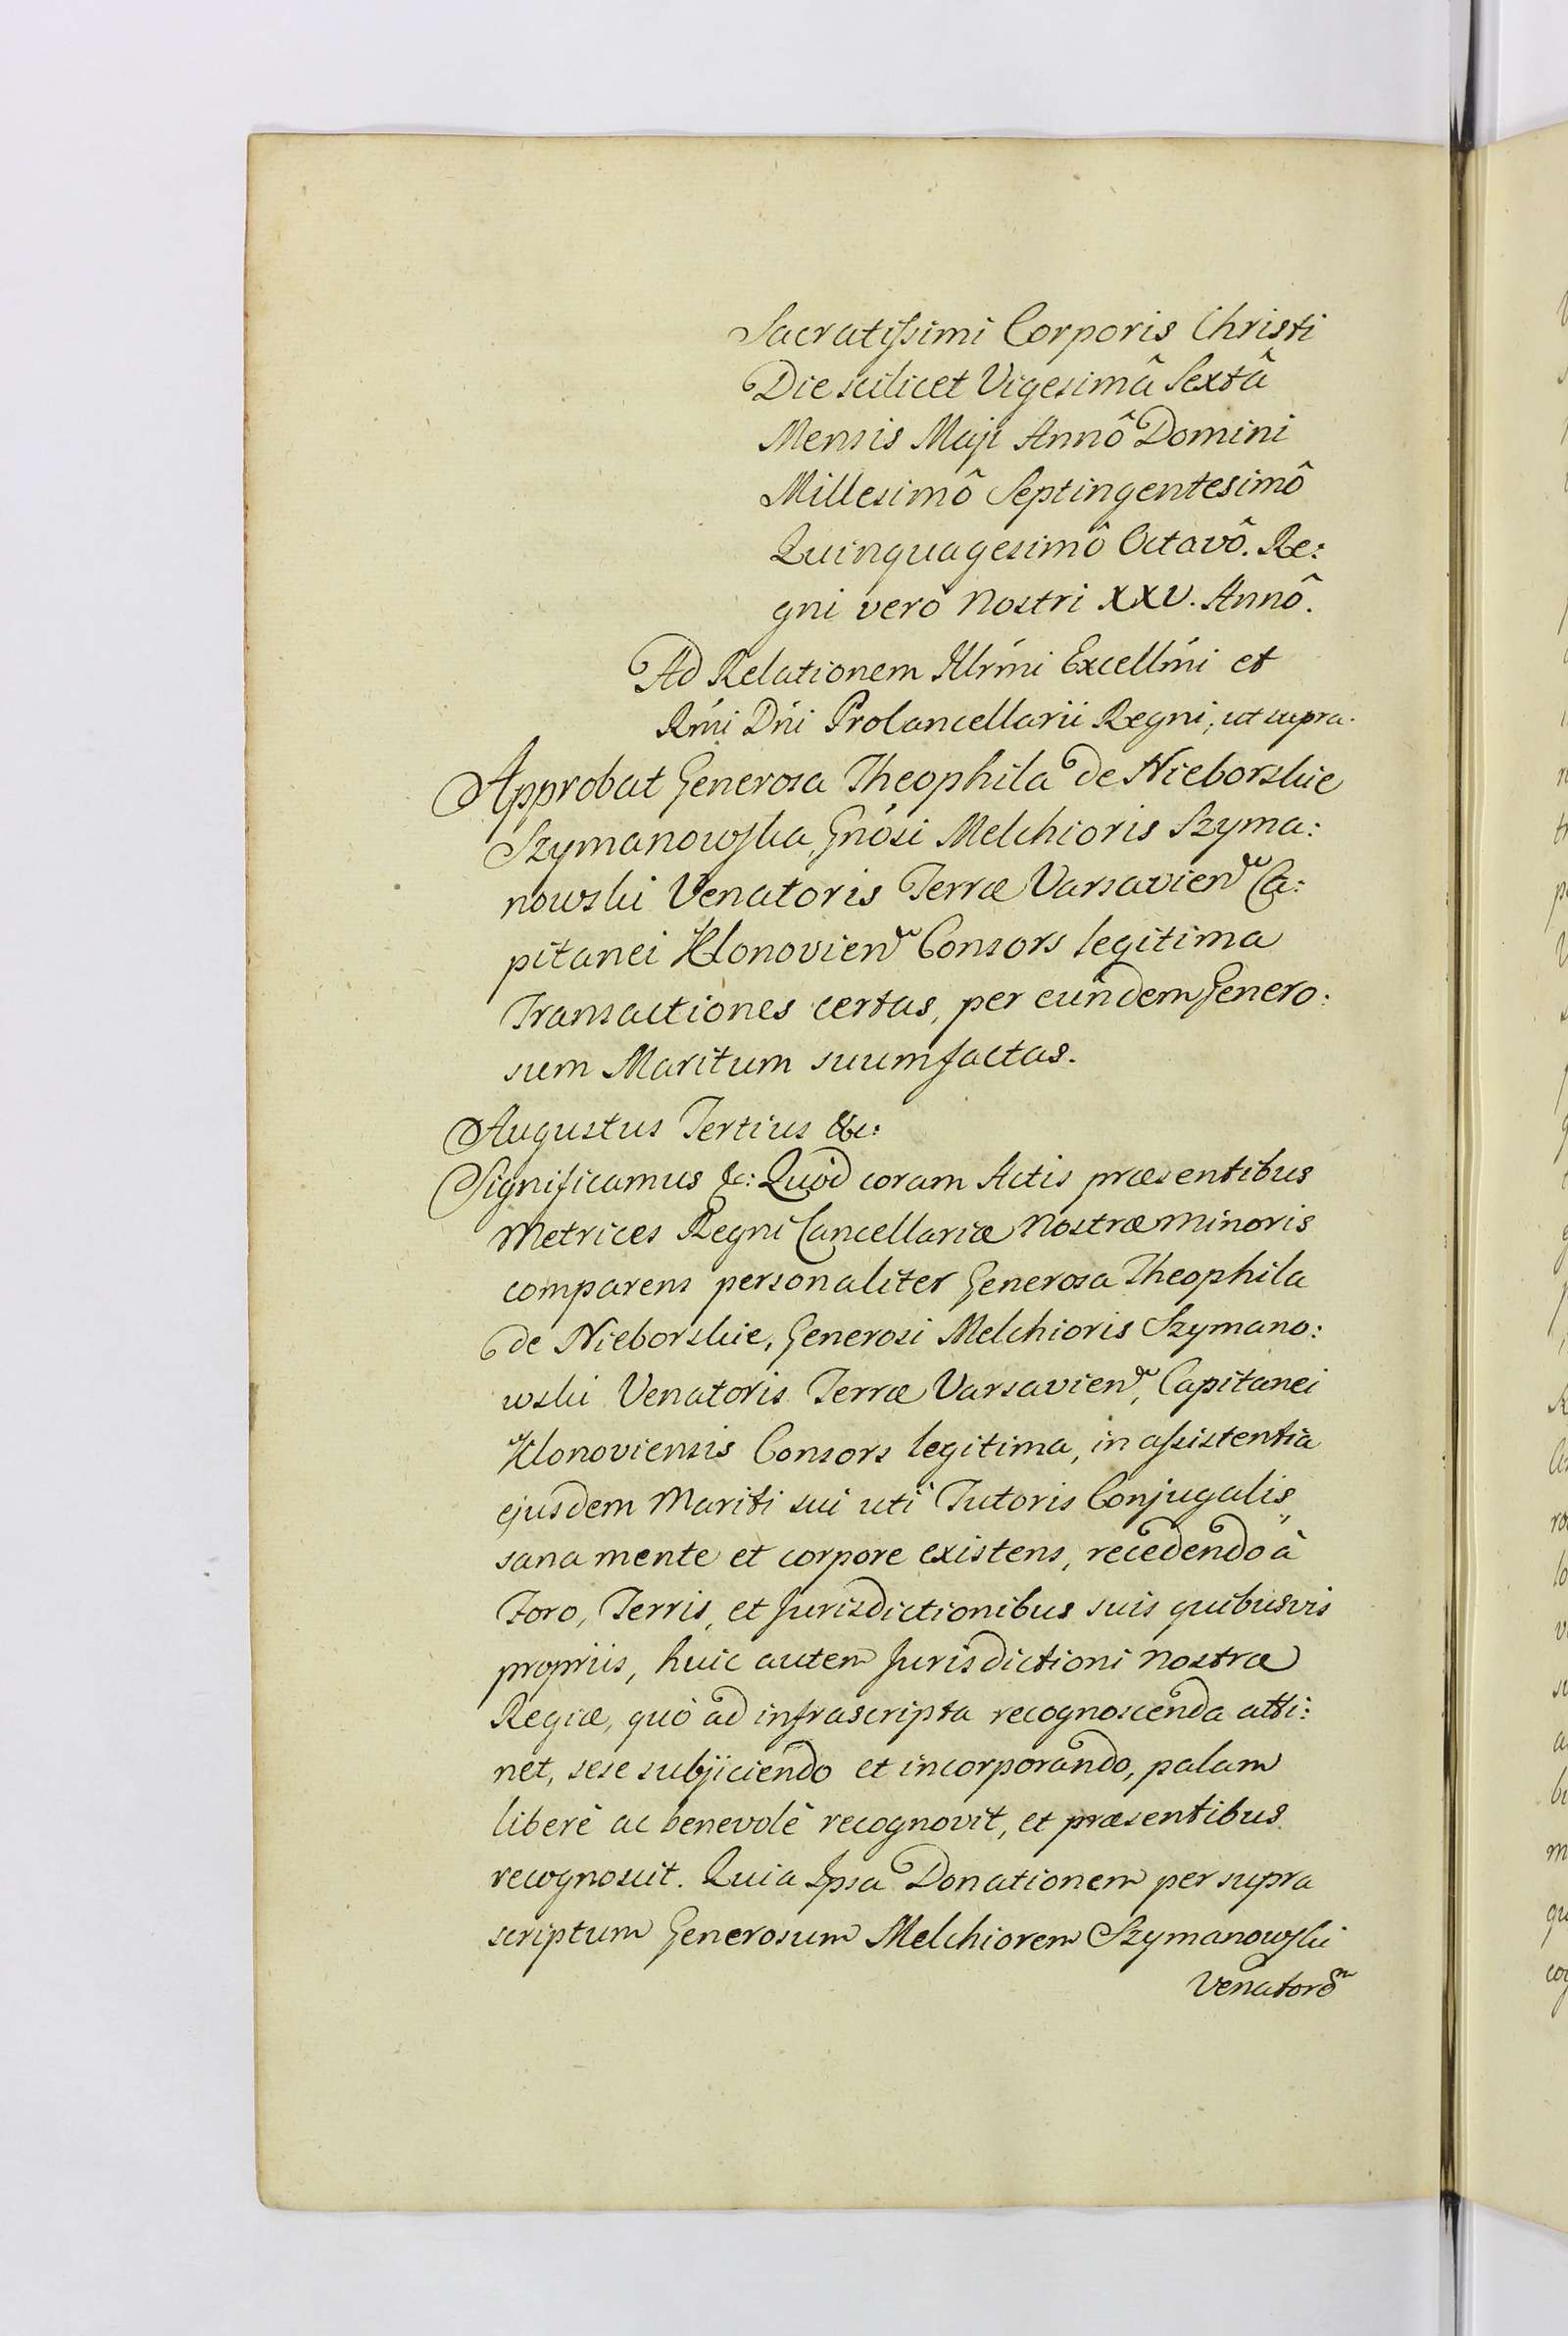 Sacratissimi Corporis Christi
Die scilicet Vigesimâ Sextâ
Mensis Maji Annô Domini
Millesimô Septingentesimô
Quinquagesimô Octavô. Re:
gni verò Nostri XXV. Annô.
Ad Relationem Illrmi Excellmi et
Rmi Dni ProCancellarii Regni, ut supra.
Approbat Generosa Theophila de Nieborskie
Szymanowska, Gnosi Melchioris Szyma:
nowski Venatoris Terræ Varsavien Ca:
pitanei Klonovien Consors legitima
Transactiones certas, per eundem Genero:
sum Maritum suum factas.
Augustus Tertius &c:
Significamus &c: Quod coram Actis præsentibus
Metrices Regni Cancellariæ Nostræ Minoris
comparens personaliter Generosa Theophila
de Nieborskie, Generosi Melchioris Szymano:
wski Venatoris Terræ Varsavien, Capitanei
Klonoviensis Consors legitima, in assistentia
ejusdem Mariti sui uti Tutoris Conjugalis,
sana mente et corpore existens, recedendo à
Foro, Terris, et Jurisdictionibus suis quibusvis
propriis, huic autem Jurisdictioni Nostræ
Regiæ, quò ad infrascripta recognoscenda atti:
net, sese subjiciendo et incorporando, palam
liberè ac benevolè recognovit, et præsentibus
recognoscit. Quia Ipsa Donationem per supra
scriptum Generosum Melchiorem Szymanowski
Venatorem